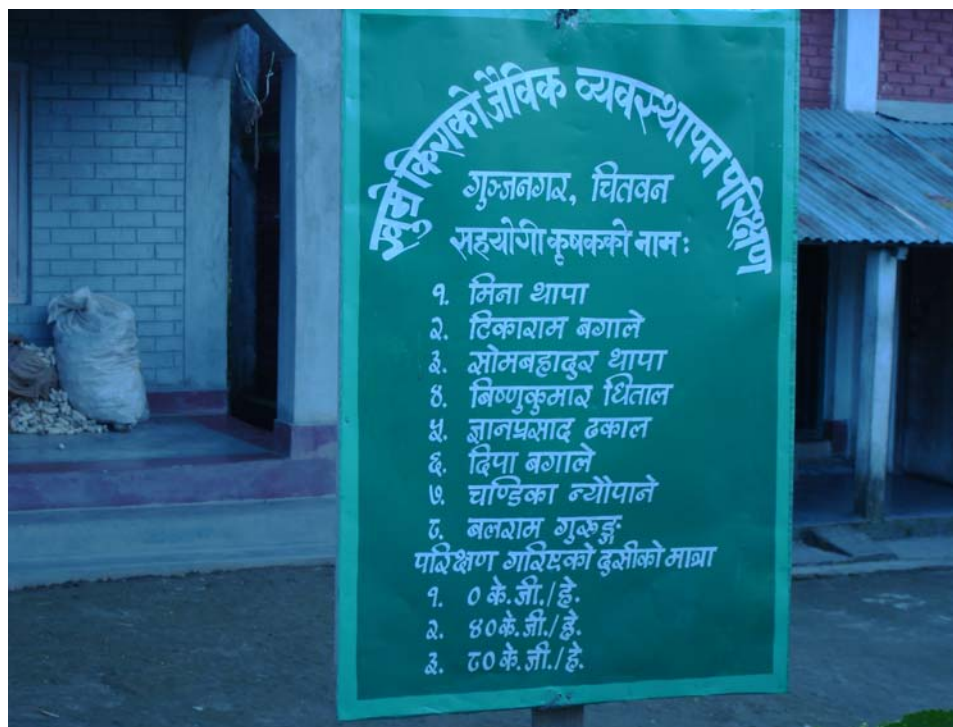 खुम्रे किराको जैविक व्यवस्थापन परिक्षण
गुञ्जनगर, चितवन
सहयोगी कृषकको नाम:
१. मिना थापा
२. टिकाराम बगाले
३. सोमबहादुर थापा
४. बिष्णुकुमार धिताल
५. ज्ञानप्रसाद ढकाल
६. दिपा बगाले
७. चण्डिका न्यौपाने
८. बलराम गुरुङ्ग
परिक्षण गरिएको ढुसीको मात्रा
१. ० के.जी./हे.
२. ४० के.जी./हे.
३. ८० के.जी./हे.